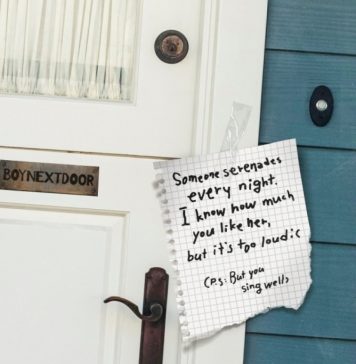 BOYNEXTDOOR
Someone serenades
every night.
I know how much
you like her,
but it's too loud:c
(P.S: But you
sing well)